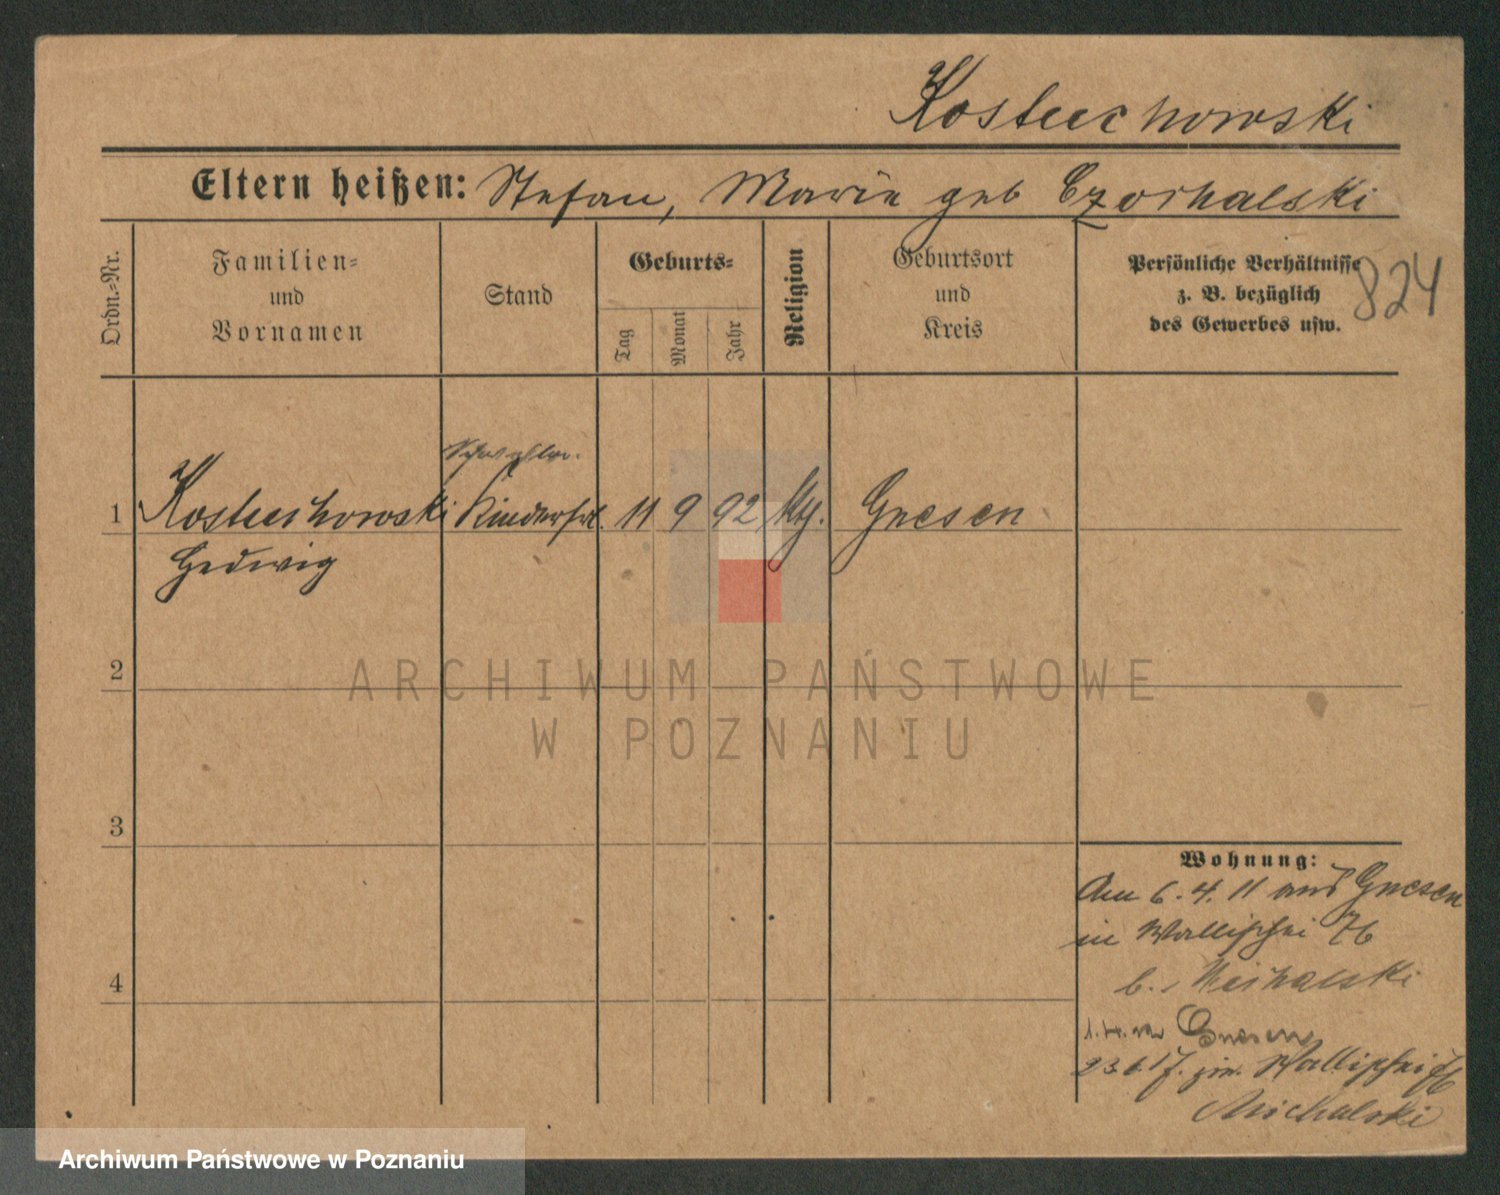 Kostuchowski
Eltern heißen: Stefan, Marie geb Czochalski
824
Ordn.-Nr.
Familien-
und
Vornamen
Stand
Geburts-
Tag
Monat
Jahr
Religion
Geburtsort
und
Kreis
Persönliche Verhältnisse
z. B. bezüglich
des Gewerbes usw.
1 Kostuchowski Kinderfrl. 11 9 92 Gnesen
Hedwig
2
3
4
ARCHIWUM PAŃSTWOWE
W POZNANIU
Wohnung:
Am 6. 4. 11 aus Gnesen
in Wallischei 76
b. Michalski
Gnesen
23.6.17. Wallischei 76
Michalski
Archiwum Państwowe w Poznaniu